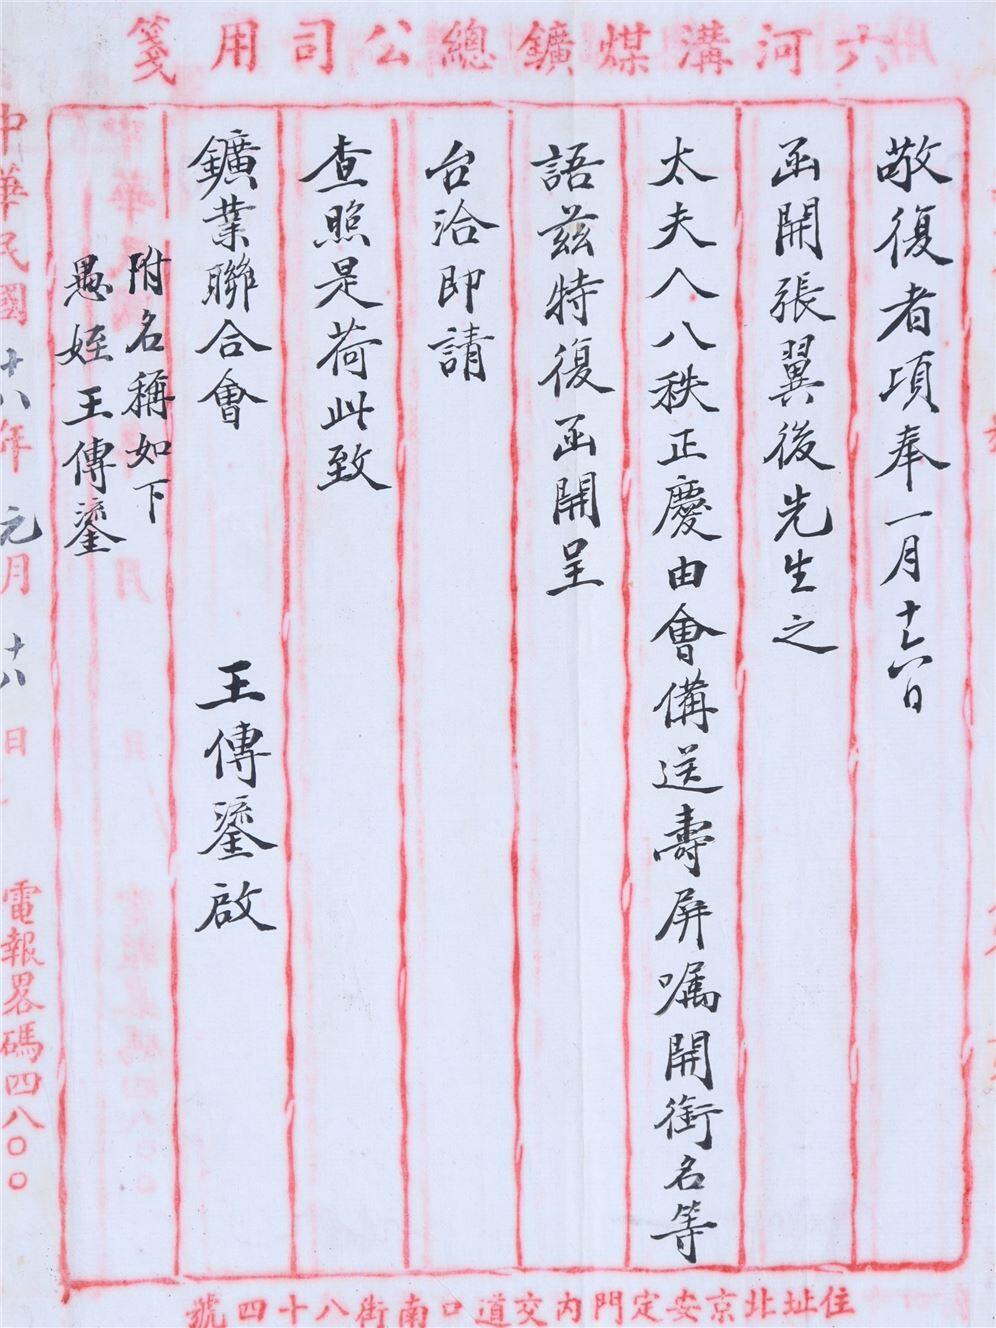 六河溝煤鑛總公司用箋
敬復者項奉一月十六日
函開張翼後先生之
太夫人八秩正慶由會備送壽屏嘱開銜名等
語茲特復函開呈
台洽即請
查照是荷此致
鑛業聯合會 王傳鎏啟
附名稱如下
愚姪王傳鎏
中華民國十八年元月十八日 電報畧碼四八〇〇
住址北京安定門內交道口南街八十四號